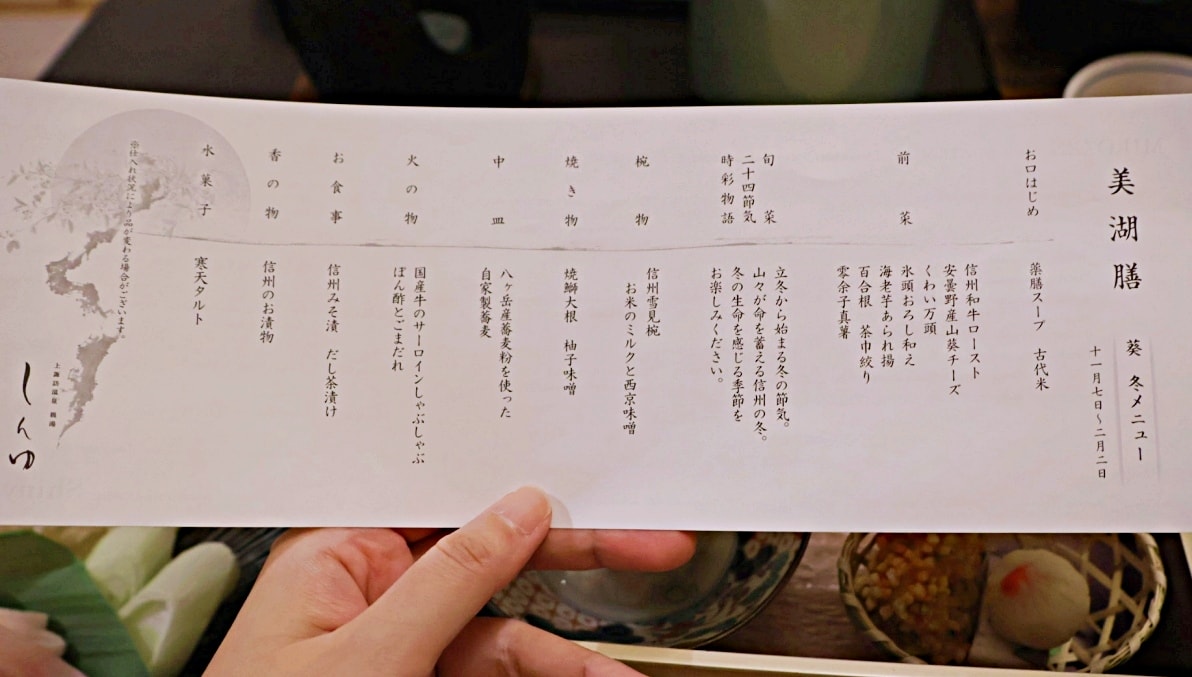 美湖膳
葵　冬メニュー
十一月七日～二月二日
お口はじめ
薬膳スープ　古代米
前菜
信州和牛ロースト
安曇野産山葵チーズ
くわい万頭
氷頭おろし和え
海老芋あられ揚
百合根　茶巾絞り
零余子真薯
旬菜
二十四節気
時彩物語
立冬から始まる冬の節気。
山々が命を蓄える信州の冬。
冬の生命を感じる季節を
お楽しみください。
椀物
信州雪見椀
お米のミルクと西京味噌
焼き物
焼鰤大根　柚子味噌
中皿
八ヶ岳産蕎麦粉を使った
自家製蕎麦
火の物
国産牛のサーロインしゃぶしゃぶ
ぽん酢とごまだれ
お食事
信州みそ漬　だし茶漬け
香の物
信州のお漬物
水菓子
寒天タルト
※仕入れ状況により品が変わる場合がございます。
上諏訪温泉
しんゆ